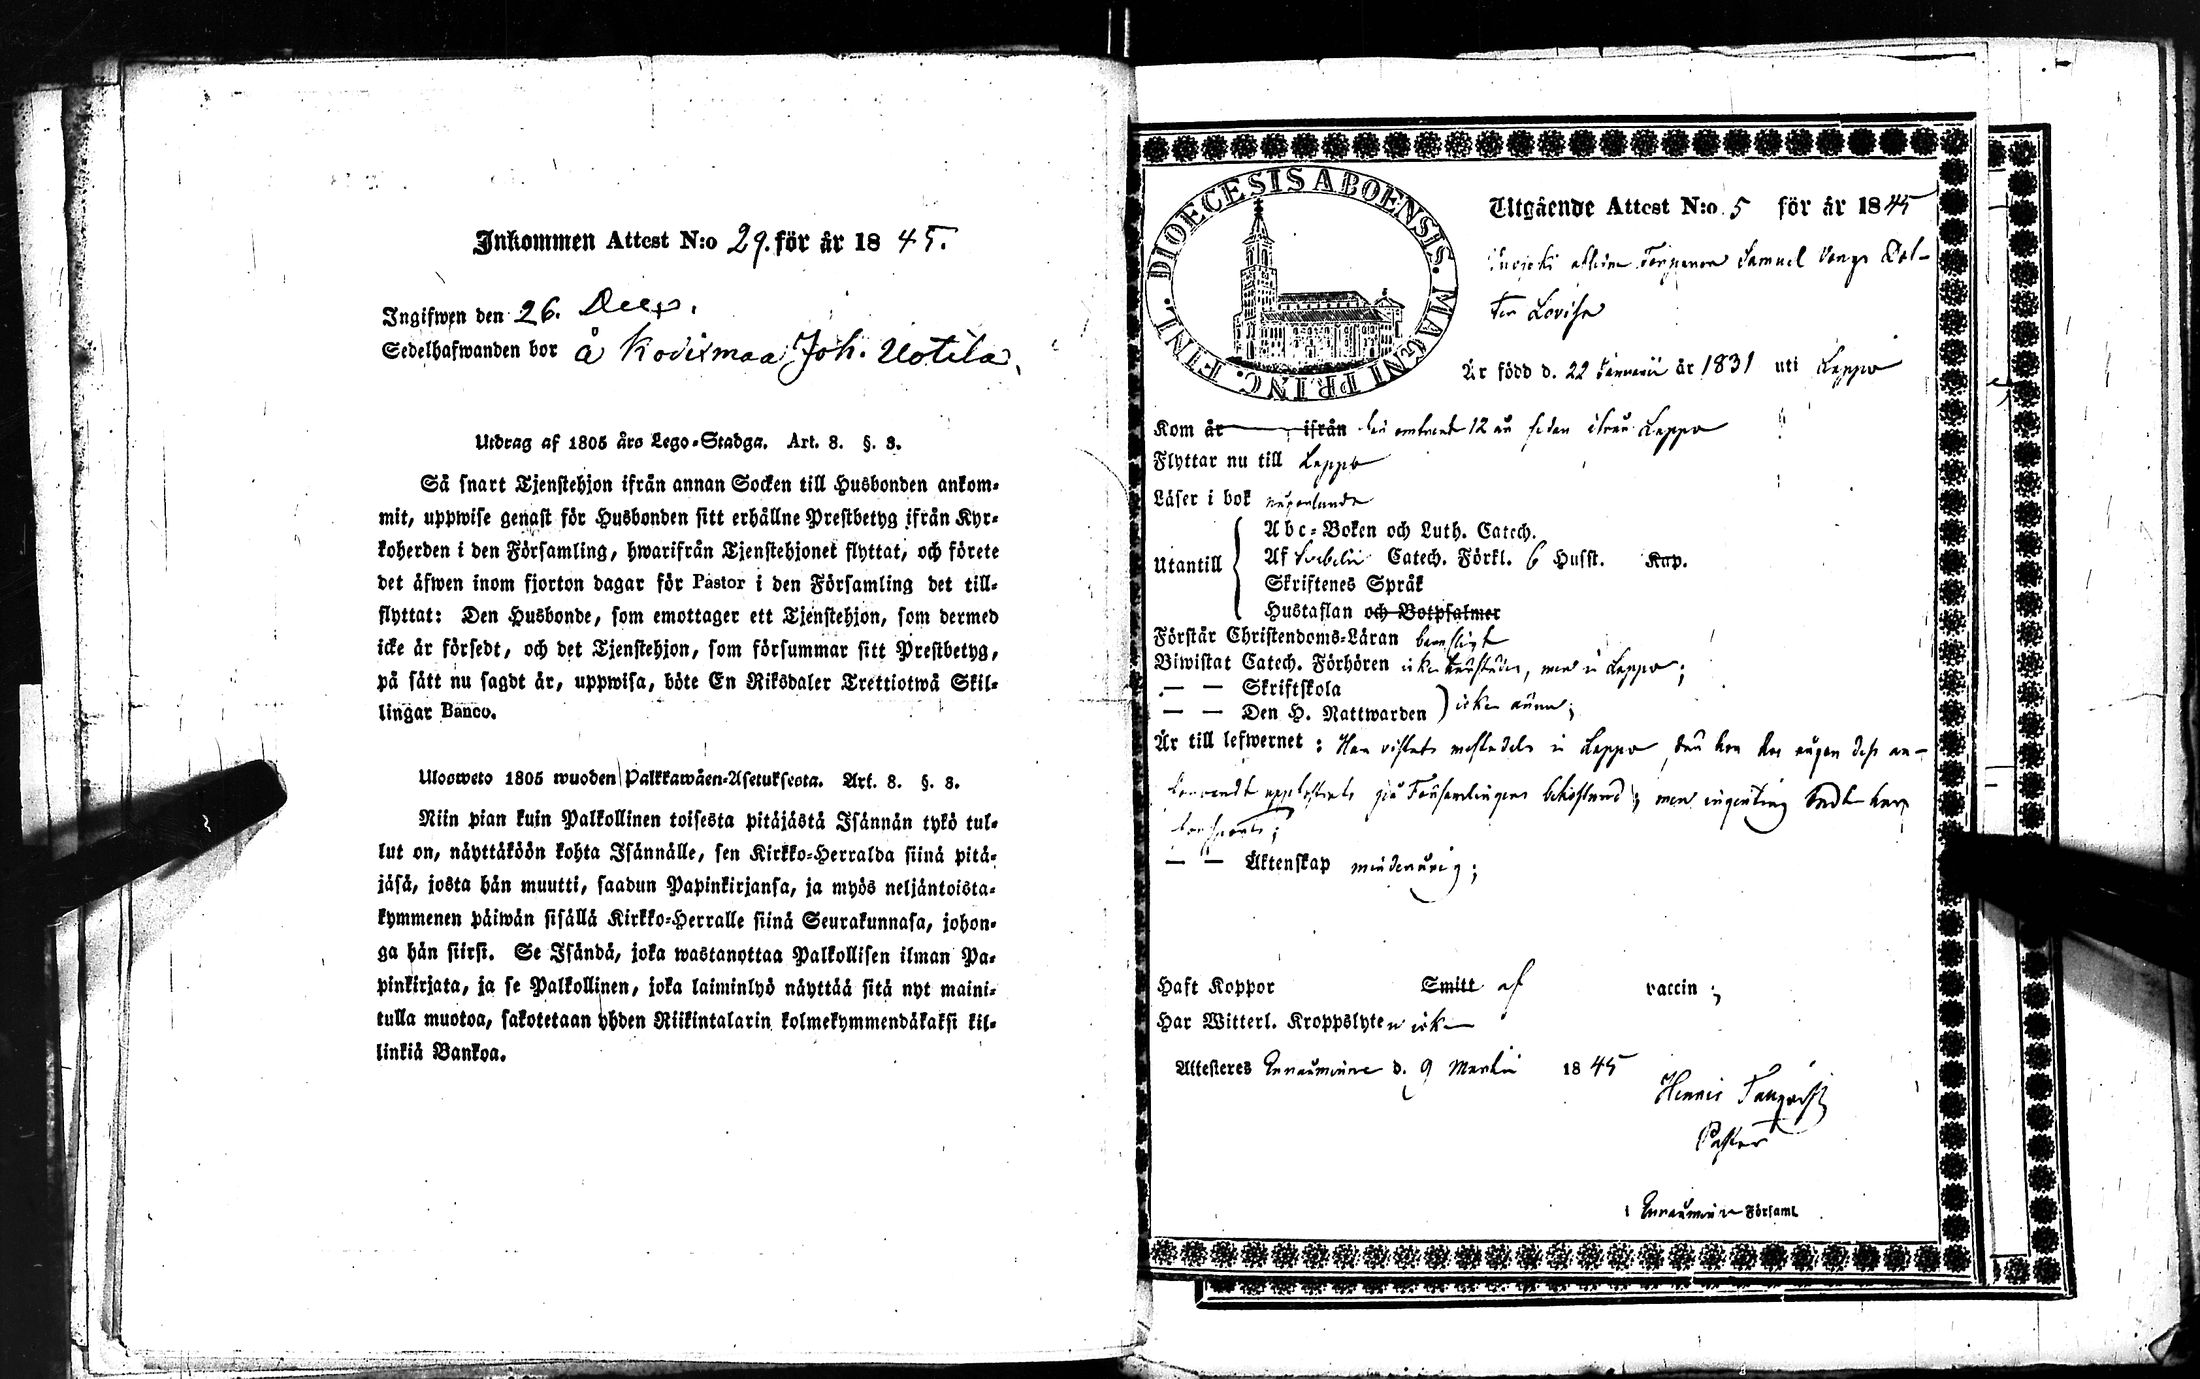 Inkommen Attest N:o 29. för år 18 45.
Ingifwen den 26. Decp.
Sedelhafwanden bor å Kodixmaa Joh. Uotila.
Utdrag af 1805 års Lego-Stadga. Art. 8. §. 3.
Så snart Tjenstehjon ifrån annan Socken till Husbonden ankom-
mit, uppwise genast för Husbonden sitt erhållne Prestbetyg ifrån Kyr-
koherden i den Församling, hwarifrån Tjenstehjonet flyttat, och förete
det äfwen inom fjorton dagar för Pastor i den Församling det till-
flyttat: Den Husbonde, som emottager ett Tjenstehjon, som dermed
icke är försedt, och det Tjenstehjon, som försummar sitt Prestbetyg,
på sätt nu sagdt är, uppwisa, böte En Riksdaler Trettiotwå Skil-
lingar Banco.
Ulosweto 1805 wuoden Palkkawäen-Asetuksesta. Art. 8. §. 3.
Niin pian kuin Palkollinen toisesta pitäjästä Isännän tykö tul-
lut on, näyttäköön kohta Isännälle, sen Kirkko-Herralda siinä pitä-
jäsä, josta hän muutti, saadun Papinkirjansa, ja myös neljäntoista-
kymmenen päiwän sisällä Kirkko-Herralle siinä Seurakunnasa, johon-
ga hän siirsi. Se Isändä, joka wastanottaa Palkollisen ilman Pa-
pinkirjata, ja se Palkollinen, joka laiminlyö näyttää sitä nyt maini-
tulla muotoa, sakotetaan yhden Riikintalarin kolmekymmendäkaksi kil-
linkiä Bankoa.
DIOECESIS ABOENSIS. MAGNI PRINC. FINL.
Utgående Attest N:o 5 för år 1845
Torparen Samuel Dot-
ter Lovisa
Är född d. 22 Januarii år 1831 uti Lappo
Kom år ifrån 12 år sedan ifrån Lappo
Flyttar nu till Lappo
Läser i bok någorlunda
Utantill
Abc-Boken och Luth. Catech.
Af Svebelii Catech. Förkl. 6 Husst. Kap.
Skriftenes Språk
Hustaflan och Botpsalmer
Förstår Christendoms-Läran
Biwistat Catech. Förhören icke men i Lappo;
— — Skriftskola
— — Den H. Nattwarden ) icke ännu;
Är till lefwernet: Har vistats mestadels i Lappo,
Församlingens bekostnad; men ingenting
— — Äktenskap minderårig;
Haft Koppor Smitt af vaccin;
Har Witterl. Kroppslyten icke
Attesteres d. 9 Martii 1845
Henric
Pastor
i Församl.